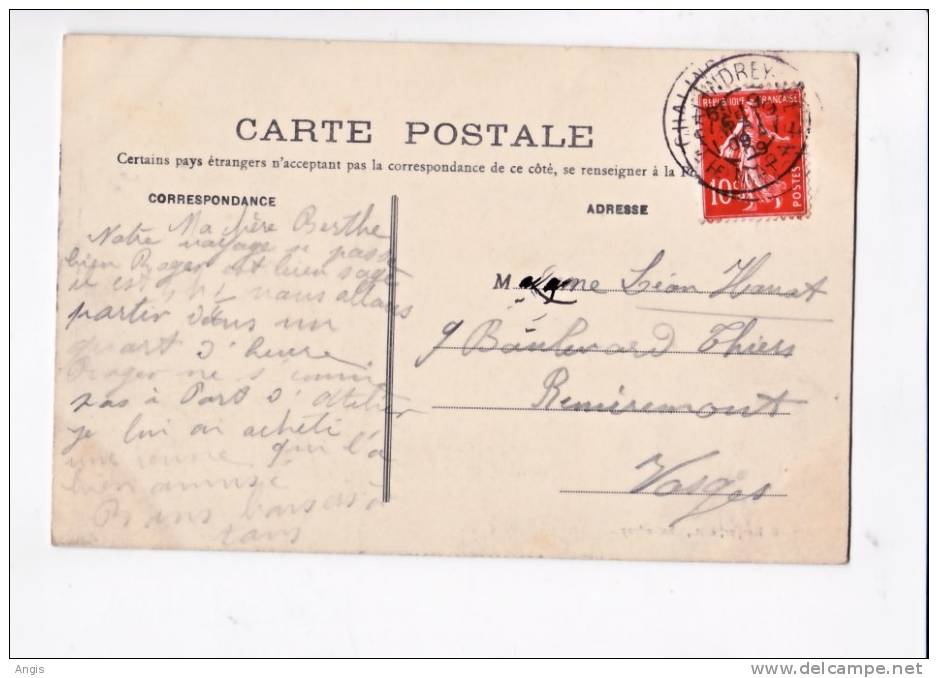 CARTE POSTALE
Certains pays étrangers n'acceptant pas la correspondance de ce côté, se renseigner à la
CORRESPONDANCE
Ma chère Berthe
Notre voyage se passe
bien Roger est bien sage
il est nous allons
partir dans un
quart d'heure
Roger ne s'ennuie
pas à Port d'Atelier
je lui ai acheté
une qui l'a
bien amusé
Bons baisers à
tous
ADRESSE
REPUBLIQUE FRANÇAISE
10c
POSTES
CHALINDREY
Madame Léon
9 Boulevard Thiers
Remiremont
Vosges
Angis
www.delcampe.net